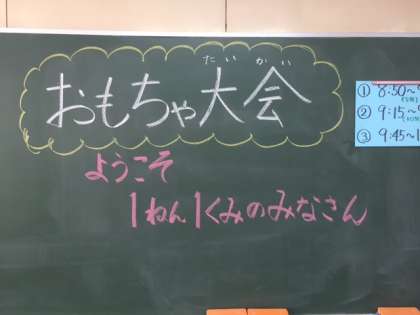 たいかい
おもちゃ大会
ようこそ
1ねん1くみのみなさん
① 8:50~
② 9:15~
③ 9:45~1